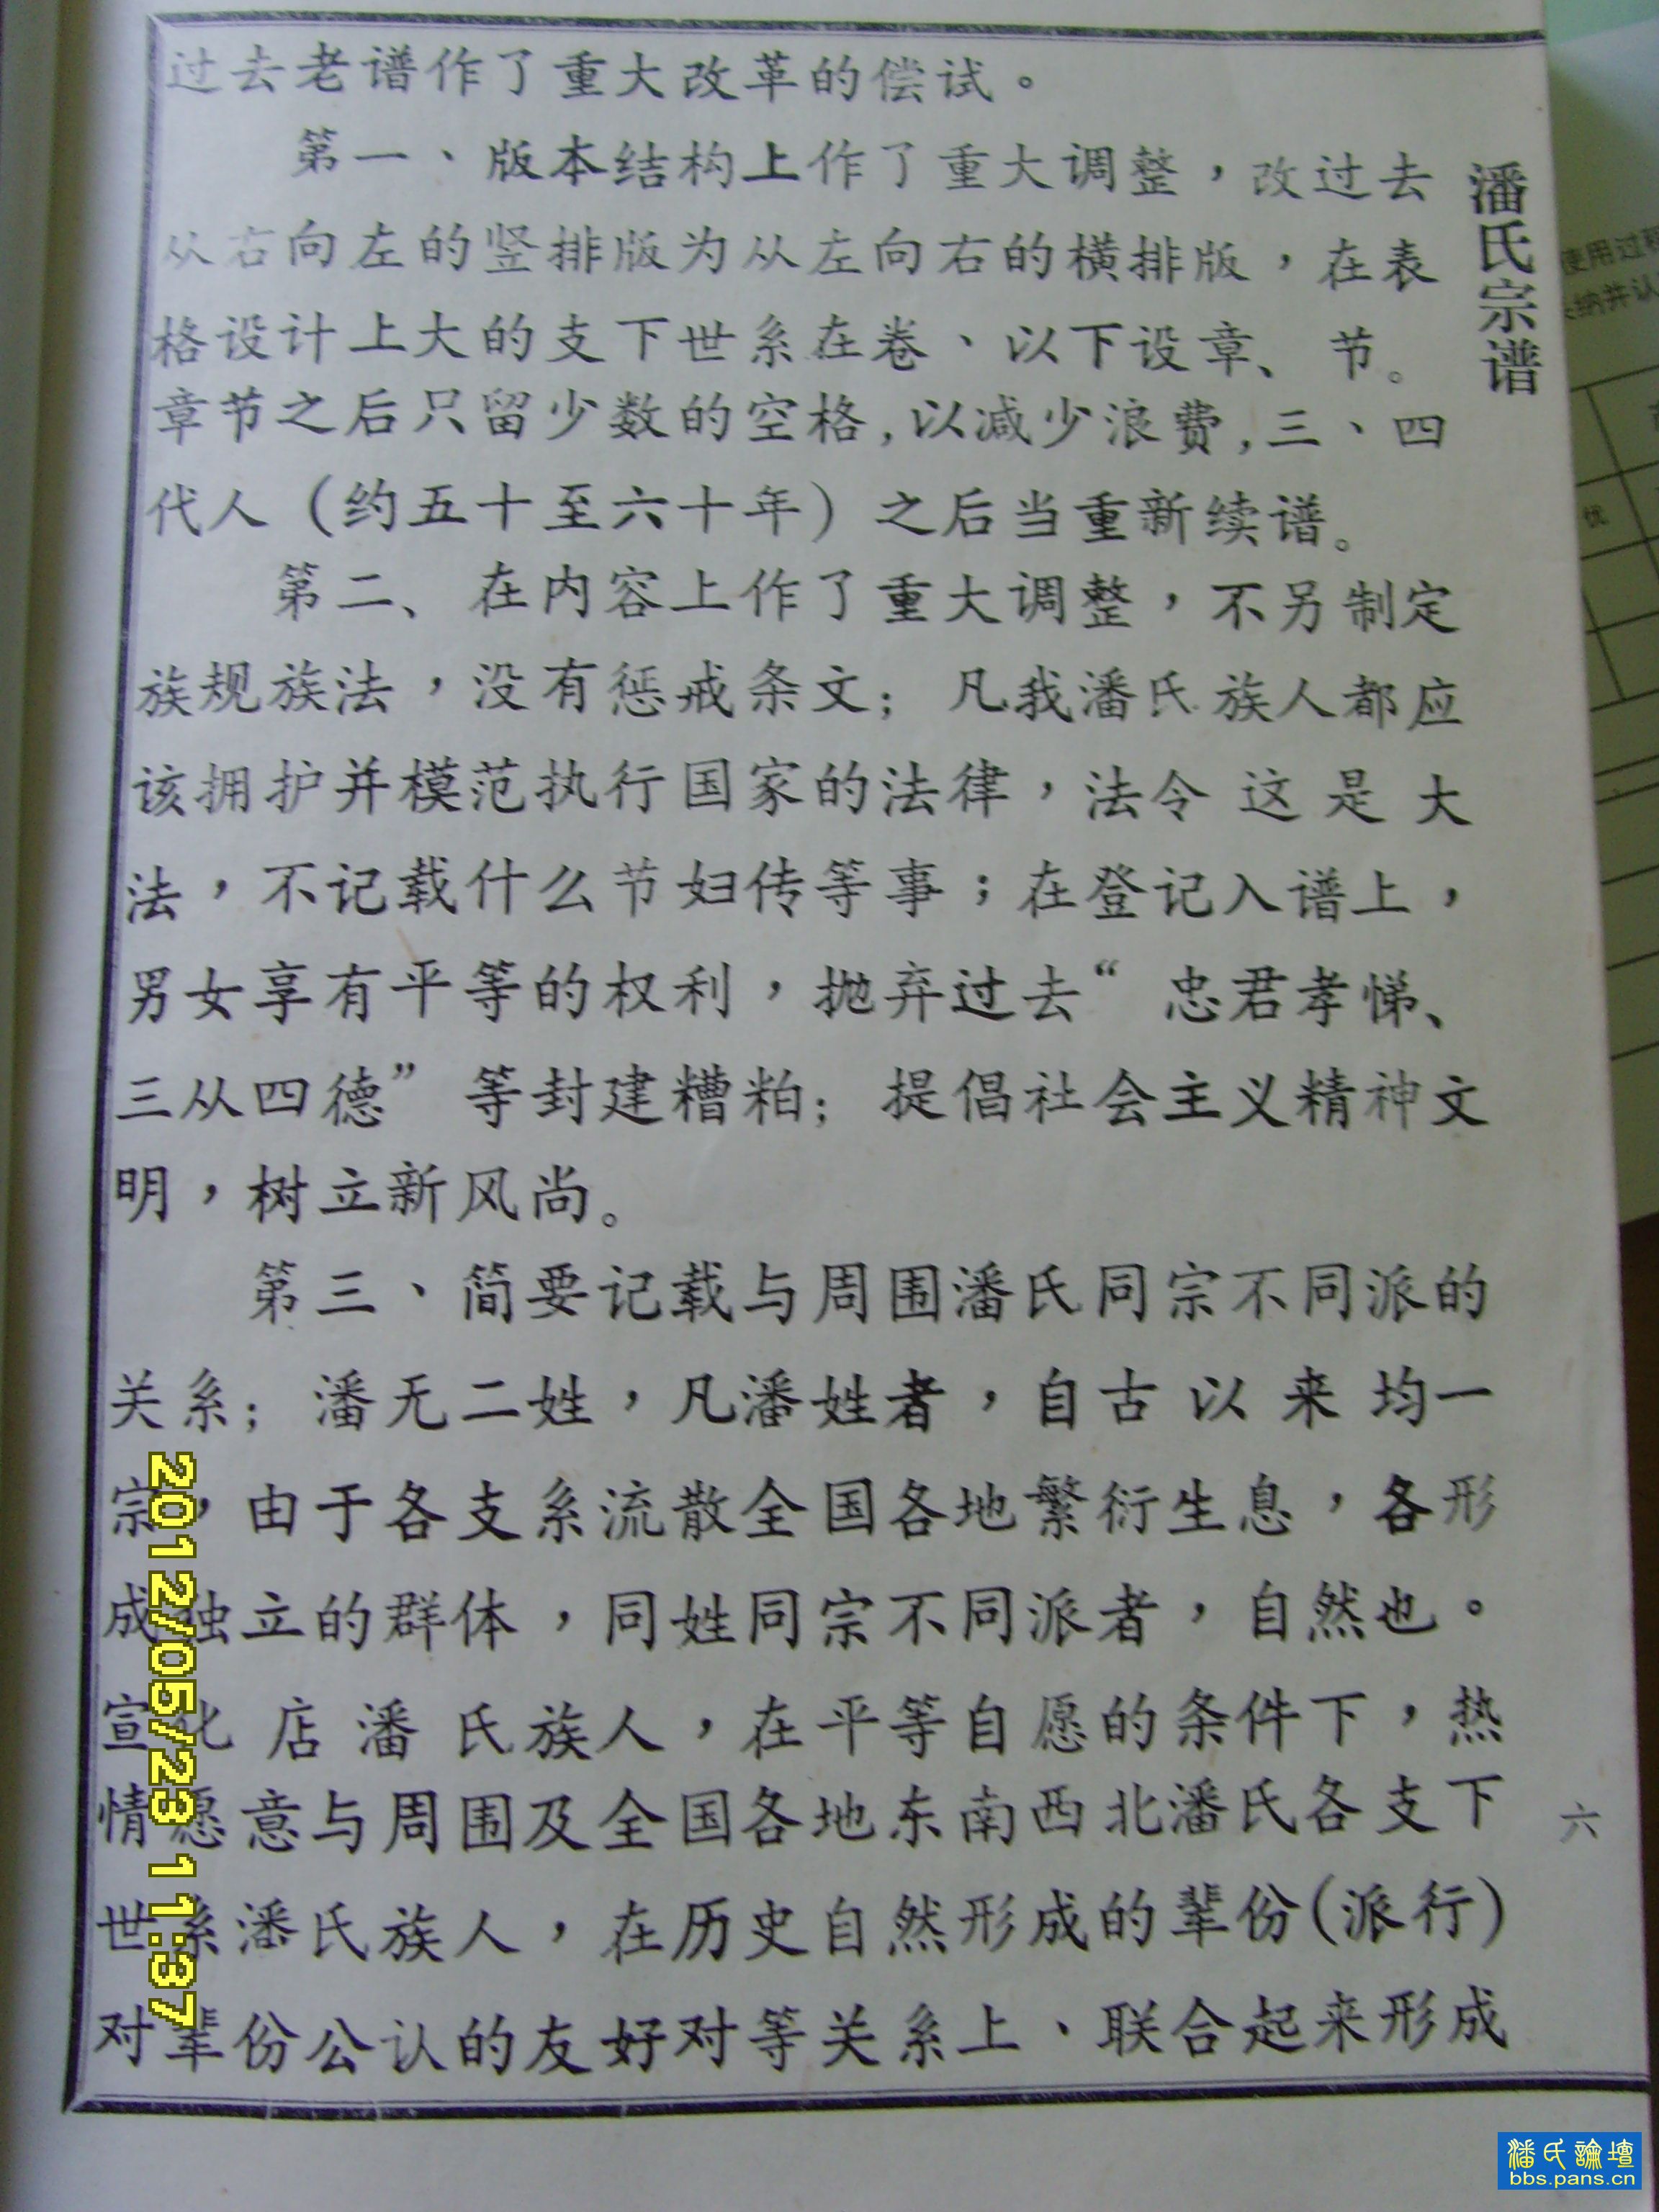 过去老谱作了重大改革的偿试。
第一、版本结构上作了重大调整，改过去
从右向左的竖排版为从左向右的横排版，在表
格设计上大的支下世系在卷、以下设章、节。
章节之后只留少数的空格,以减少浪费,三、四
代人（约五十至六十年）之后当重新续谱。
第二、在内容上作了重大调整，不另制定
族规族法，没有惩戒条文；凡我潘氏族人都应
该拥护并模范执行国家的法律，法令这是大
法，不记载什么节妇传等事；在登记入谱上，
男女享有平等的权利，抛弃过去“忠君孝悌、
三从四德”等封建糟粕；提倡社会主义精神文
明，树立新风尚。
第三、简要记载与周围潘氏同宗不同派的
关系；潘无二姓，凡潘姓者，自古以来均一
宗，由于各支系流散全国各地繁衍生息，各形
成独立的群体，同姓同宗不同派者，自然也。
宣化店潘氏族人，在平等自愿的条件下，热
情愿意与周围及全国各地东南西北潘氏各支下
世系潘氏族人，在历史自然形成的辈份(派行)
对辈份公认的友好对等关系上、联合起来形成
潘氏宗谱
六
使用过程
纳并认
优
2012/05/23 11:37
潘氏論壇
bbs.pans.cn